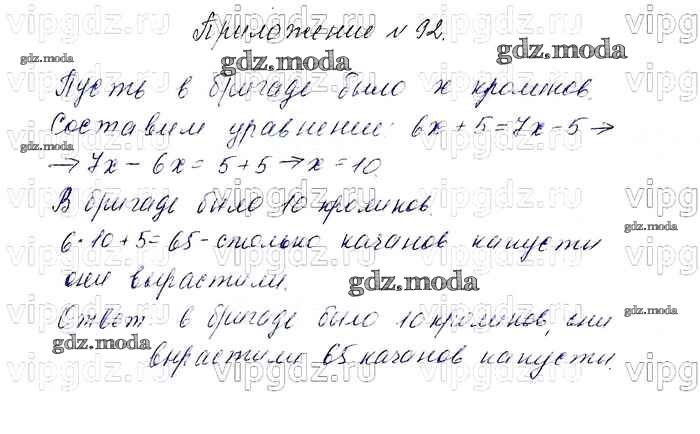 Приложение №92.
Пусть в бригаде было х кроликов.
Составим уравнение: 6х + 5 = 7х - 5 →
→ 7х - 6х = 5 + 5 → х = 10.
В бригаде было 10 кроликов.
6 · 10 + 5 = 65 - столько качанов капусты
они вырастили.
Ответ: в бригаде было 10 кроликов, они
вырастили 65 качанов капусты.
gdz.moda
gdz.moda
gdz.moda
gdz.moda
gdz.moda
gdz.moda
gdz.moda
gdz.moda
gdz.moda
vipgdz.ru